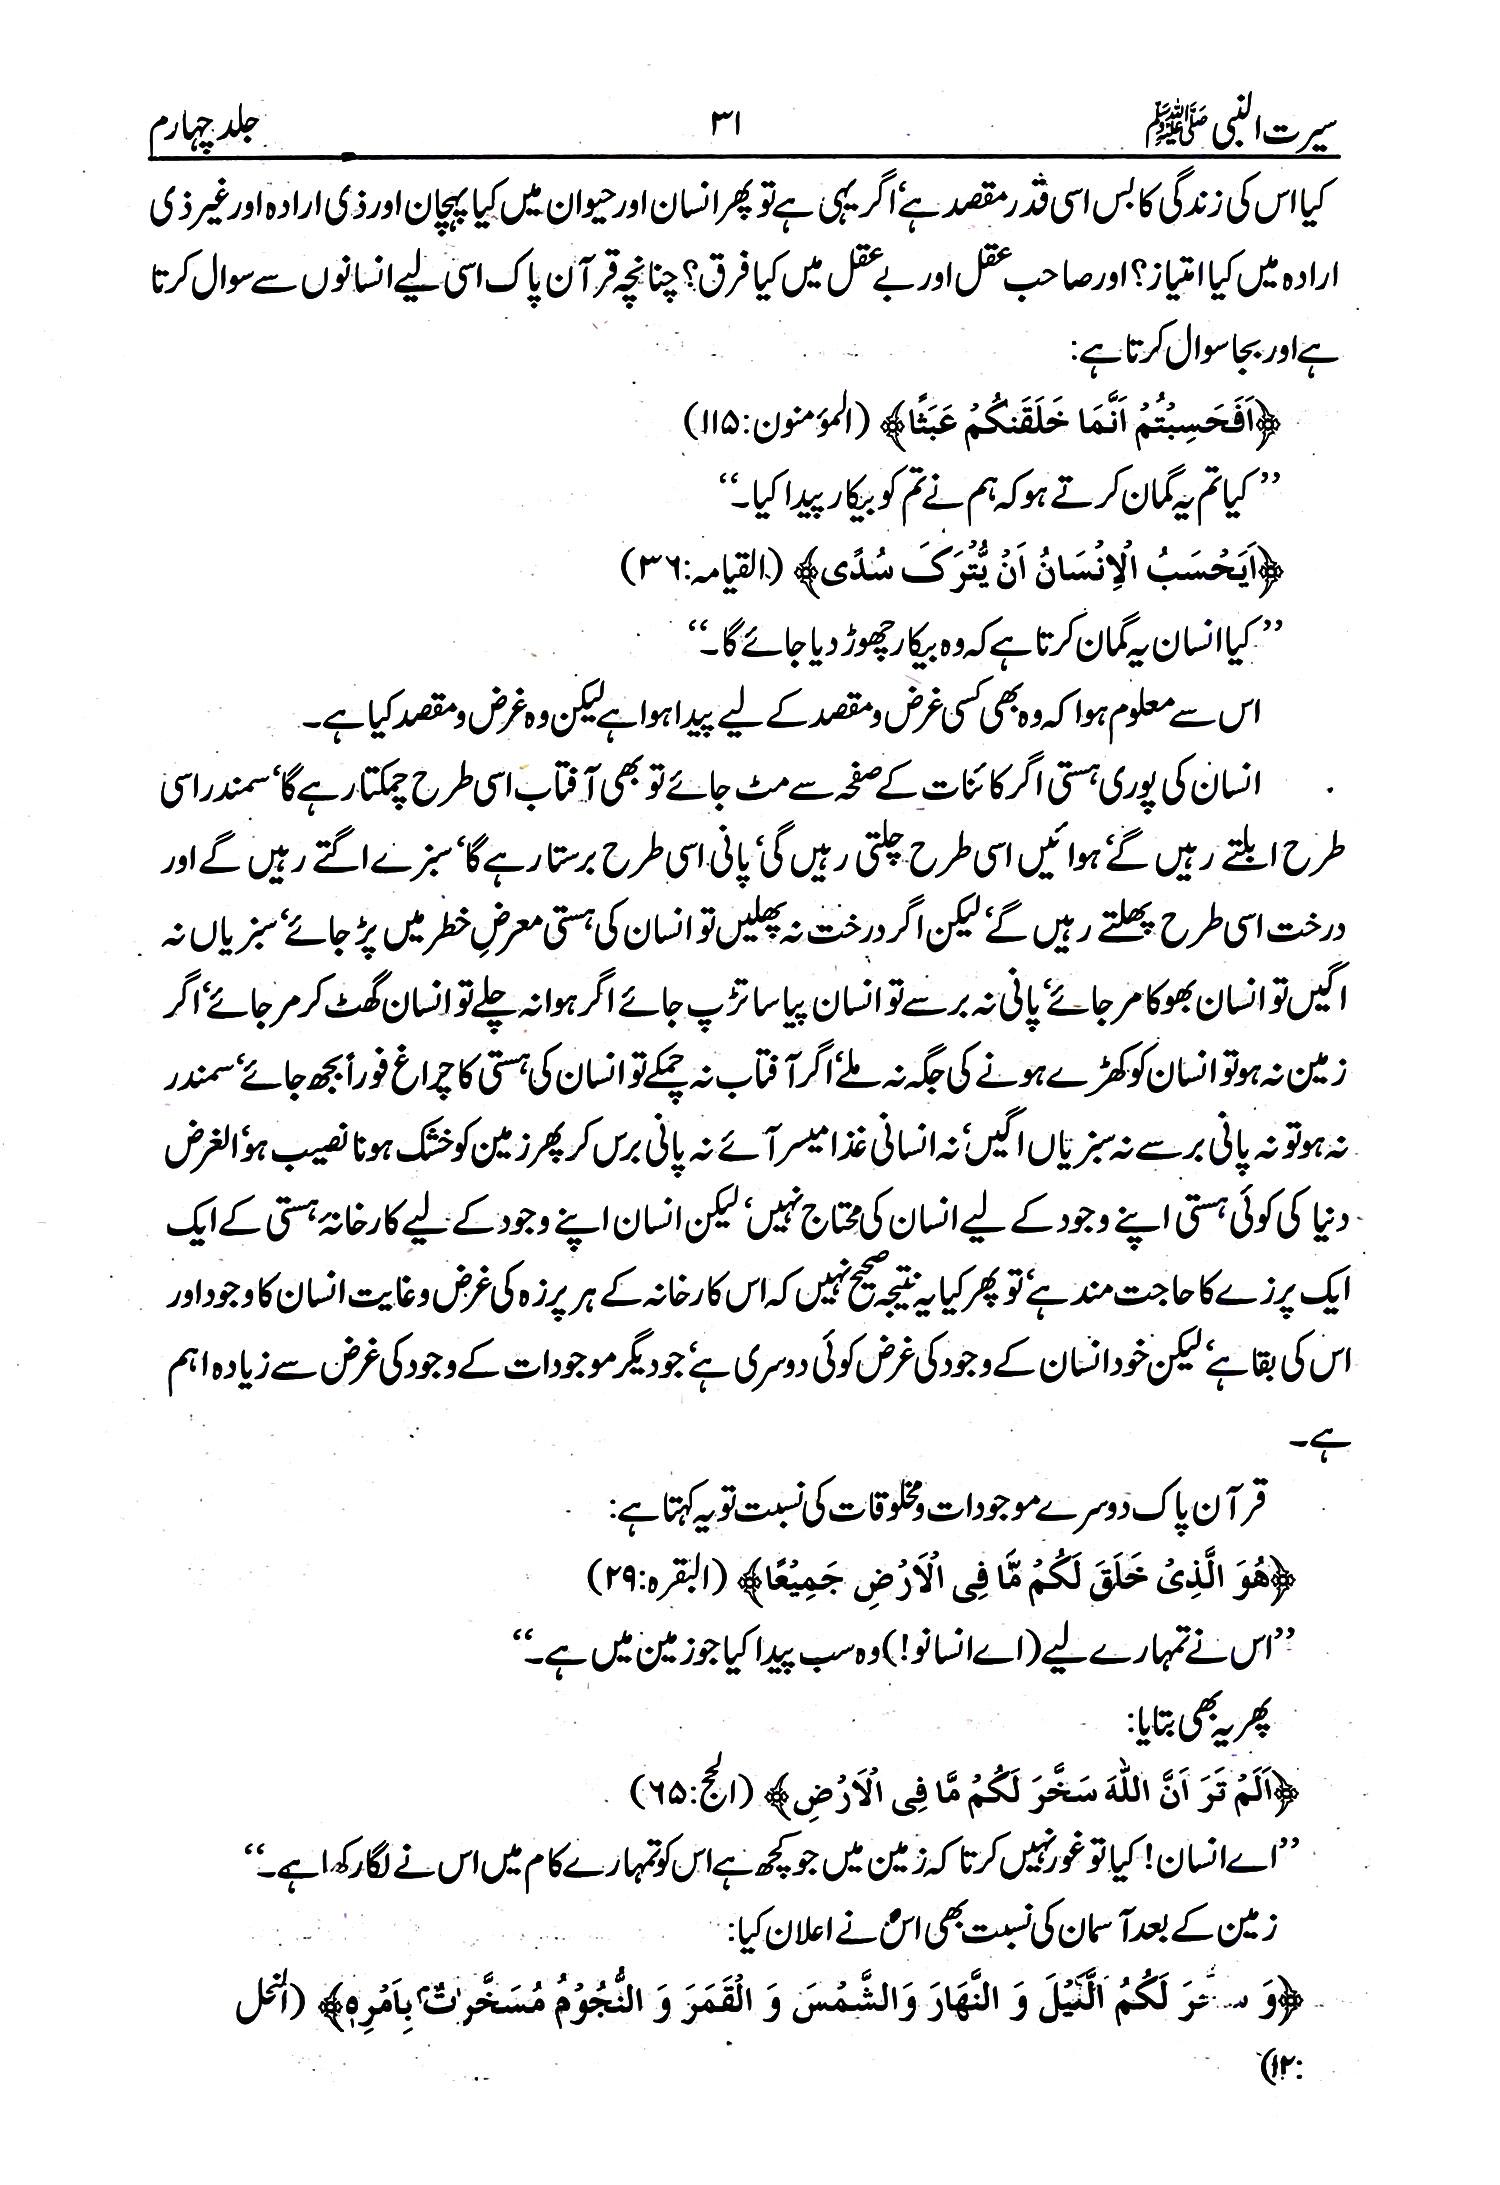 سیرت النبی ﷺ ۳۱ جلد چہارم
کیا اس کی زندگی کا بس اسی قدر مقصد ہے‘ اگر یہی ہے تو پھر انسان اور حیوان میں کیا پہچان اور ذی ارادہ اور غیر ذی
ارادہ میں کیا امتیاز؟ اور صاحب عقل اور بے عقل میں کیا فرق؟ چنانچہ قرآن پاک اسی لیے انسانوں سے سوال کرتا
ہے اور بجا سوال کرتا ہے:
﴿اَفَحَسِبْتُمْ اَنَّمَا خَلَقْنٰكُمْ عَبَثًا﴾ (المؤمنون:۱۱۵)
’’کیا تم یہ گمان کرتے ہو کہ ہم نے تم کو بیکار پیدا کیا۔‘‘
﴿اَيَحْسَبُ الْاِنْسَانُ اَنْ يُّتْرَكَ سُدًى﴾ (القیامہ:۳۶)
’’کیا انسان یہ گمان کرتا ہے کہ وہ بیکار چھوڑ دیا جائے گا۔‘‘
اس سے معلوم ہوا کہ وہ بھی کسی غرض و مقصد کے لیے پیدا ہوا ہے لیکن وہ غرض و مقصد کیا ہے۔
انسان کی پوری ہستی اگر کائنات کے صفحہ سے مٹ جائے تو بھی آفتاب اسی طرح چمکتا رہے گا‘ سمندر اسی
طرح ابلتے رہیں گے‘ ہوائیں اسی طرح چلتی رہیں گی‘ پانی اسی طرح برستا رہے گا‘ سبزے اگتے رہیں گے اور
درخت اسی طرح پھلتے رہیں گے‘ لیکن اگر درخت نہ پھلیں تو انسان کی ہستی معرضِ خطر میں پڑ جائے‘ سبزیاں نہ
اگیں تو انسان بھوکا مر جائے‘ پانی نہ برسے تو انسان پیاسا تڑپ جائے اگر ہوا نہ چلے تو انسان گھٹ کر مر جائے‘ اگر
زمین نہ ہو تو انسان کو کھڑے ہونے کی جگہ نہ ملے‘ اگر آفتاب نہ چمکے تو انسان کی ہستی کا چراغ فوراً بجھ جائے‘ سمندر
نہ ہو تو نہ پانی برسے نہ سبزیاں اگیں‘ نہ انسانی غذا میسر آئے نہ پانی برس کر پھر زمین کو خشک ہونا نصیب ہو‘ الغرض
دنیا کی کوئی ہستی اپنے وجود کے لیے انسان کی محتاج نہیں‘ لیکن انسان اپنے وجود کے لیے کارخانۂ ہستی کے ایک
ایک پرزے کا حاجت مند ہے‘ تو پھر کیا یہ نتیجہ صحیح نہیں کہ اس کارخانہ کے ہر پرزہ کی غرض و غایت انسان کا وجود اور
اس کی بقا ہے‘ لیکن خود انسان کے وجود کی غرض کوئی دوسری ہے‘ جو دیگر موجودات کے وجود کی غرض سے زیادہ اہم
ہے۔
قرآن پاک دوسرے موجودات و مخلوقات کی نسبت تو یہ کہتا ہے:
﴿هُوَ الَّذِىْ خَلَقَ لَكُمْ مَّا فِى الْاَرْضِ جَمِيْعًا﴾ (البقرہ:۲۹)
’’اس نے تمہارے لیے (اے انسانو!) وہ سب پیدا کیا جو زمین میں ہے۔‘‘
پھر یہ بھی بتایا:
﴿اَلَمْ تَرَ اَنَّ اللّٰهَ سَخَّرَ لَكُمْ مَّا فِى الْاَرْضِ﴾ (الحج:۶۵)
’’اے انسان! کیا تو غور نہیں کرتا کہ زمین میں جو کچھ ہے اس کو تمہارے کام میں اس نے لگا رکھا ہے۔‘‘
زمین کے بعد آسمان کی نسبت بھی اس نے اعلان کیا:
﴿وَ سَخَّرَ لَكُمُ الَّيْلَ وَ النَّهَارَ وَالشَّمْسَ وَ الْقَمَرَ وَ النُّجُوْمُ مُسَخَّرٰتٌۢ بِاَمْرِهٖ﴾ (النحل
:۱۲)